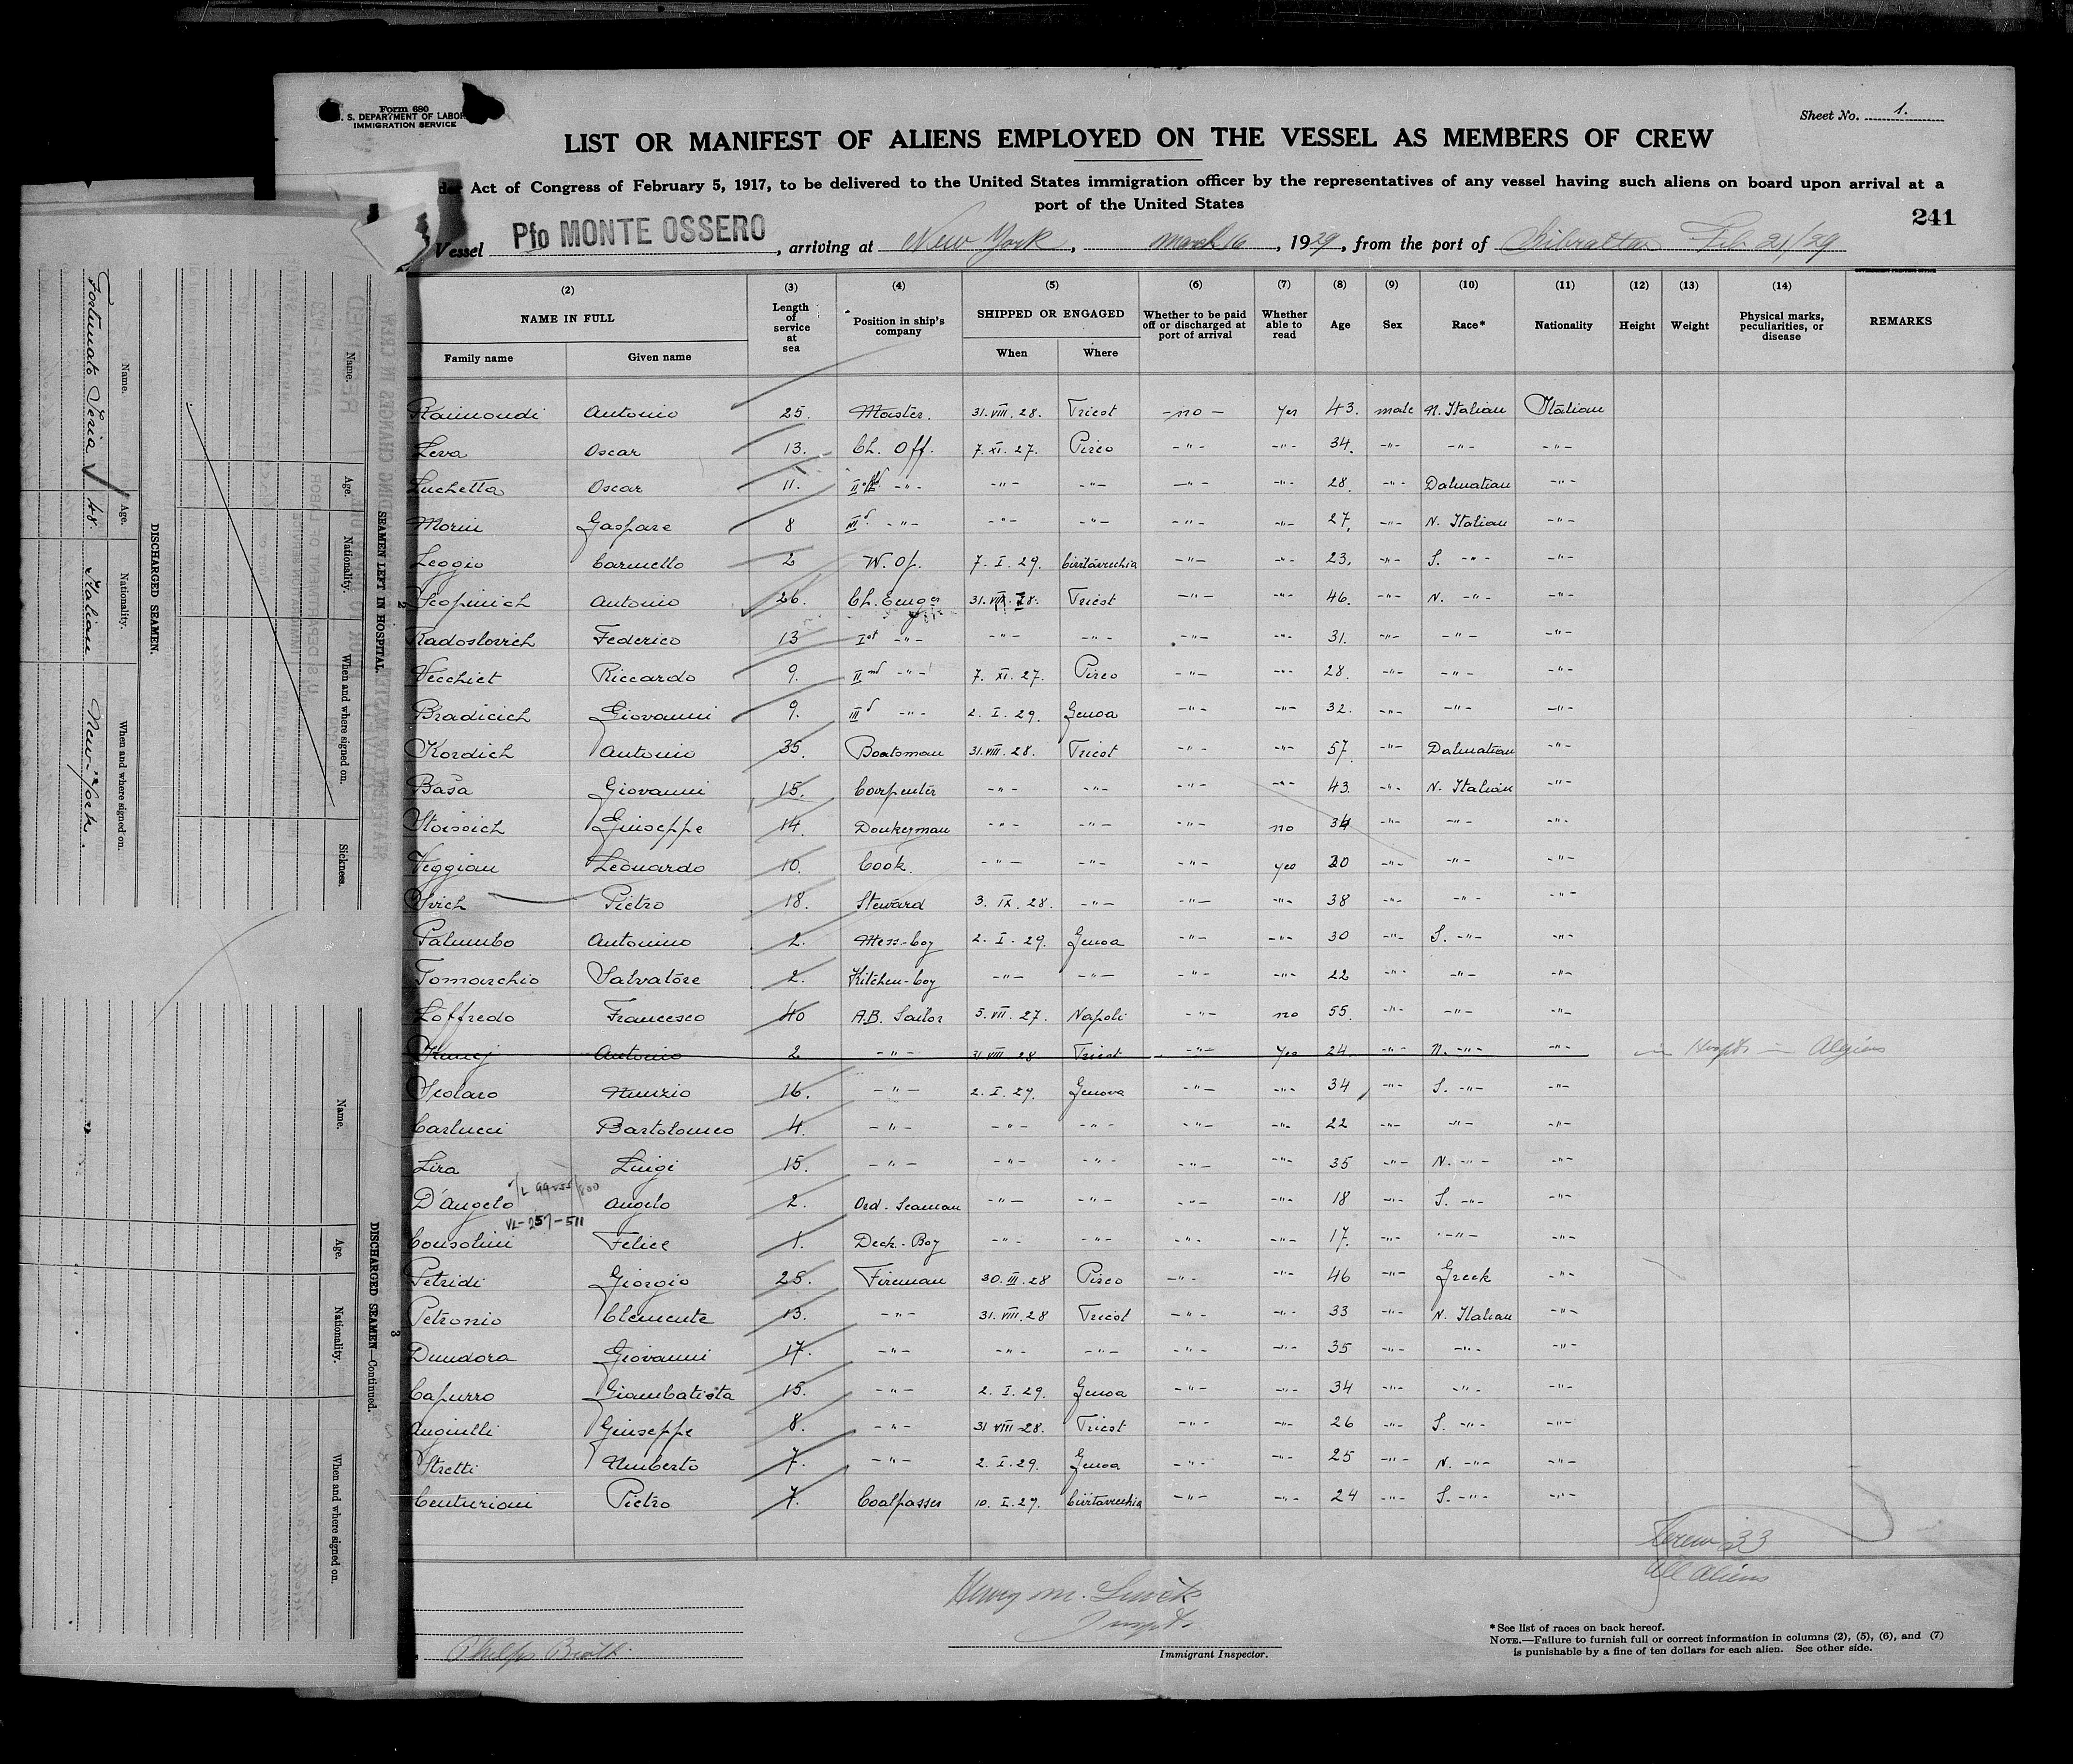 Form 680
U. S. DEPARTMENT OF LABOR
IMMIGRATION SERVICE
Sheet No. 1.
LIST OR MANIFEST OF ALIENS EMPLOYED ON THE VESSEL AS MEMBERS OF CREW
Act of Congress of February 5, 1917, to be delivered to the United States immigration officer by the representatives of any vessel having such aliens on board upon arrival at a
port of the United States
241
Vessel Pfo MONTE OSSERO, arriving at New York, March 16, 1929, from the port of Gibraltar Feb 21/29
(2) (3) (4) (5) (6) (7) (8) (9) (10) (11) (12) (13) (14)
NAME IN FULL Length of service at sea Position in ship's company SHIPPED OR ENGAGED Whether to be paid off or discharged at port of arrival Whether able to read Age Sex Race* Nationality Height Weight Physical marks, peculiarities, or disease REMARKS
Family name Given name When Where
Raimondi Antonio 25. Master. 31.VIII.28. Triest -no- yes 43. male N. Italian Italian
Leva Oscar 13. Ch. Off. 7.XI.27. Pireo -"- -"- 34. -"- -"- -"-
Luchetta Oscar 11. II -"- -"- -"- -"- -"- 28. -"- Dalmatian -"-
Morin Gaspare 8 III -"- -"- -"- -"- -"- 27. -"- N. Italian -"-
Leogio Carmello 2 W. Op. 7.I.29. Civitavecchia -"- -"- 23. -"- S. -"- -"-
Scopinich Antonio 26. Ch. Enger 31.VIII.28. Triest -"- -"- 46. -"- N. -"- -"-
Radoslovich Federico 13 Ist -"- -"- -"- -"- -"- 31. -"- -"- -"-
Vecchiet Riccardo 9. IInd -"- 7.XI.27. Pireo -"- -"- 28. -"- -"- -"-
Bradicich Giovanni 9. IIId -"- 2.I.29. Genoa -"- -"- 32. -"- -"- -"-
Kordich Antonio 35. Boatsman 31.VIII.28. Triest -"- -"- 57. -"- Dalmatian -"-
Basa Giovanni 15. Carpenter -"- -"- -"- -"- 43. -"- N. Italian -"-
Stoissich Giuseppe 14. Donkeyman -"- -"- -"- no 34 -"- -"- -"-
Veggian Leonardo 10. Cook. -"- -"- -"- yes 30 -"- -"- -"-
Ivich Pietro 18. Steward 3.IX.28. -"- -"- -"- 38 -"- -"- -"-
Palumbo Antonino 2. Mess-boy 2.I.29. Genoa -"- -"- 30 -"- S. -"- -"-
Tomarchio Salvatore 2. Kitchen-boy -"- -"- -"- -"- 22 -"- -"- -"-
Loffredo Francesco 40 A.B. Sailor 5.VII.27. Napoli -"- no 55. -"- -"- -"-
Antonio 2 -"- 31.VIII.28 Triest -"- yes 24 -"- N. -"- -"- in Hospt. in Algiers
Scolaro Nunzio 16. -"- 2.I.29. Genova -"- -"- 34 -"- S. -"- -"-
Carlucci Bartolomeo 4. -"- -"- -"- -"- -"- 22 -"- -"- -"-
Lira Luigi 15. -"- -"- -"- -"- -"- 35 -"- N. -"- -"-
D'Angelo Angelo 2. Ord. Seaman -"- -"- -"- -"- 18 -"- S. -"- -"-
VL-257-511
Consolini Felice 1. Deck-Boy -"- -"- -"- -"- 17. -"- -"- -"-
Petridi Giorgio 25. Fireman 30.III.28 Pireo -"- -"- 46 -"- Greek -"-
Petronio Clemente 13. -"- 31.VIII.28 Triest -"- -"- 33 -"- N. Italian -"-
Dundora Giovanni 17. -"- -"- -"- -"- -"- 35 -"- -"- -"-
Capurro Giambatista 15. -"- 2.I.29. Genoa -"- -"- 34 -"- -"- -"-
Anginelli Giuseppe 8. -"- 31 VIII 28. Triest -"- -"- 26 -"- S. -"- -"-
Stretti Umberto 7. -"- 2.I.29. Genoa -"- -"- 25 -"- N. -"- -"-
Centurioni Pietro 7. Coalpasser 10.I.29. Civitavecchia -"- -"- 24 -"- S. -"- -"-
Crew 33
All Aliens
Henry M.
Inspt.
Immigrant Inspector.
Phelps Bros
*See list of races on back hereof.
NOTE.—Failure to furnish full or correct information in columns (2), (5), (6), and (7)
is punishable by a fine of ten dollars for each alien. See other side.
2
SEAMEN LEFT IN HOSPITAL.
Name. Age. Nationality. When and where signed on. Sickness.
DISCHARGED SEAMEN.
Name. Age. Nationality. When and where signed on.
Fortunato Seria 48. Italian New-York.
3
DISCHARGED SEAMEN—Continued.
Name. Age. Nationality. When and where signed on.